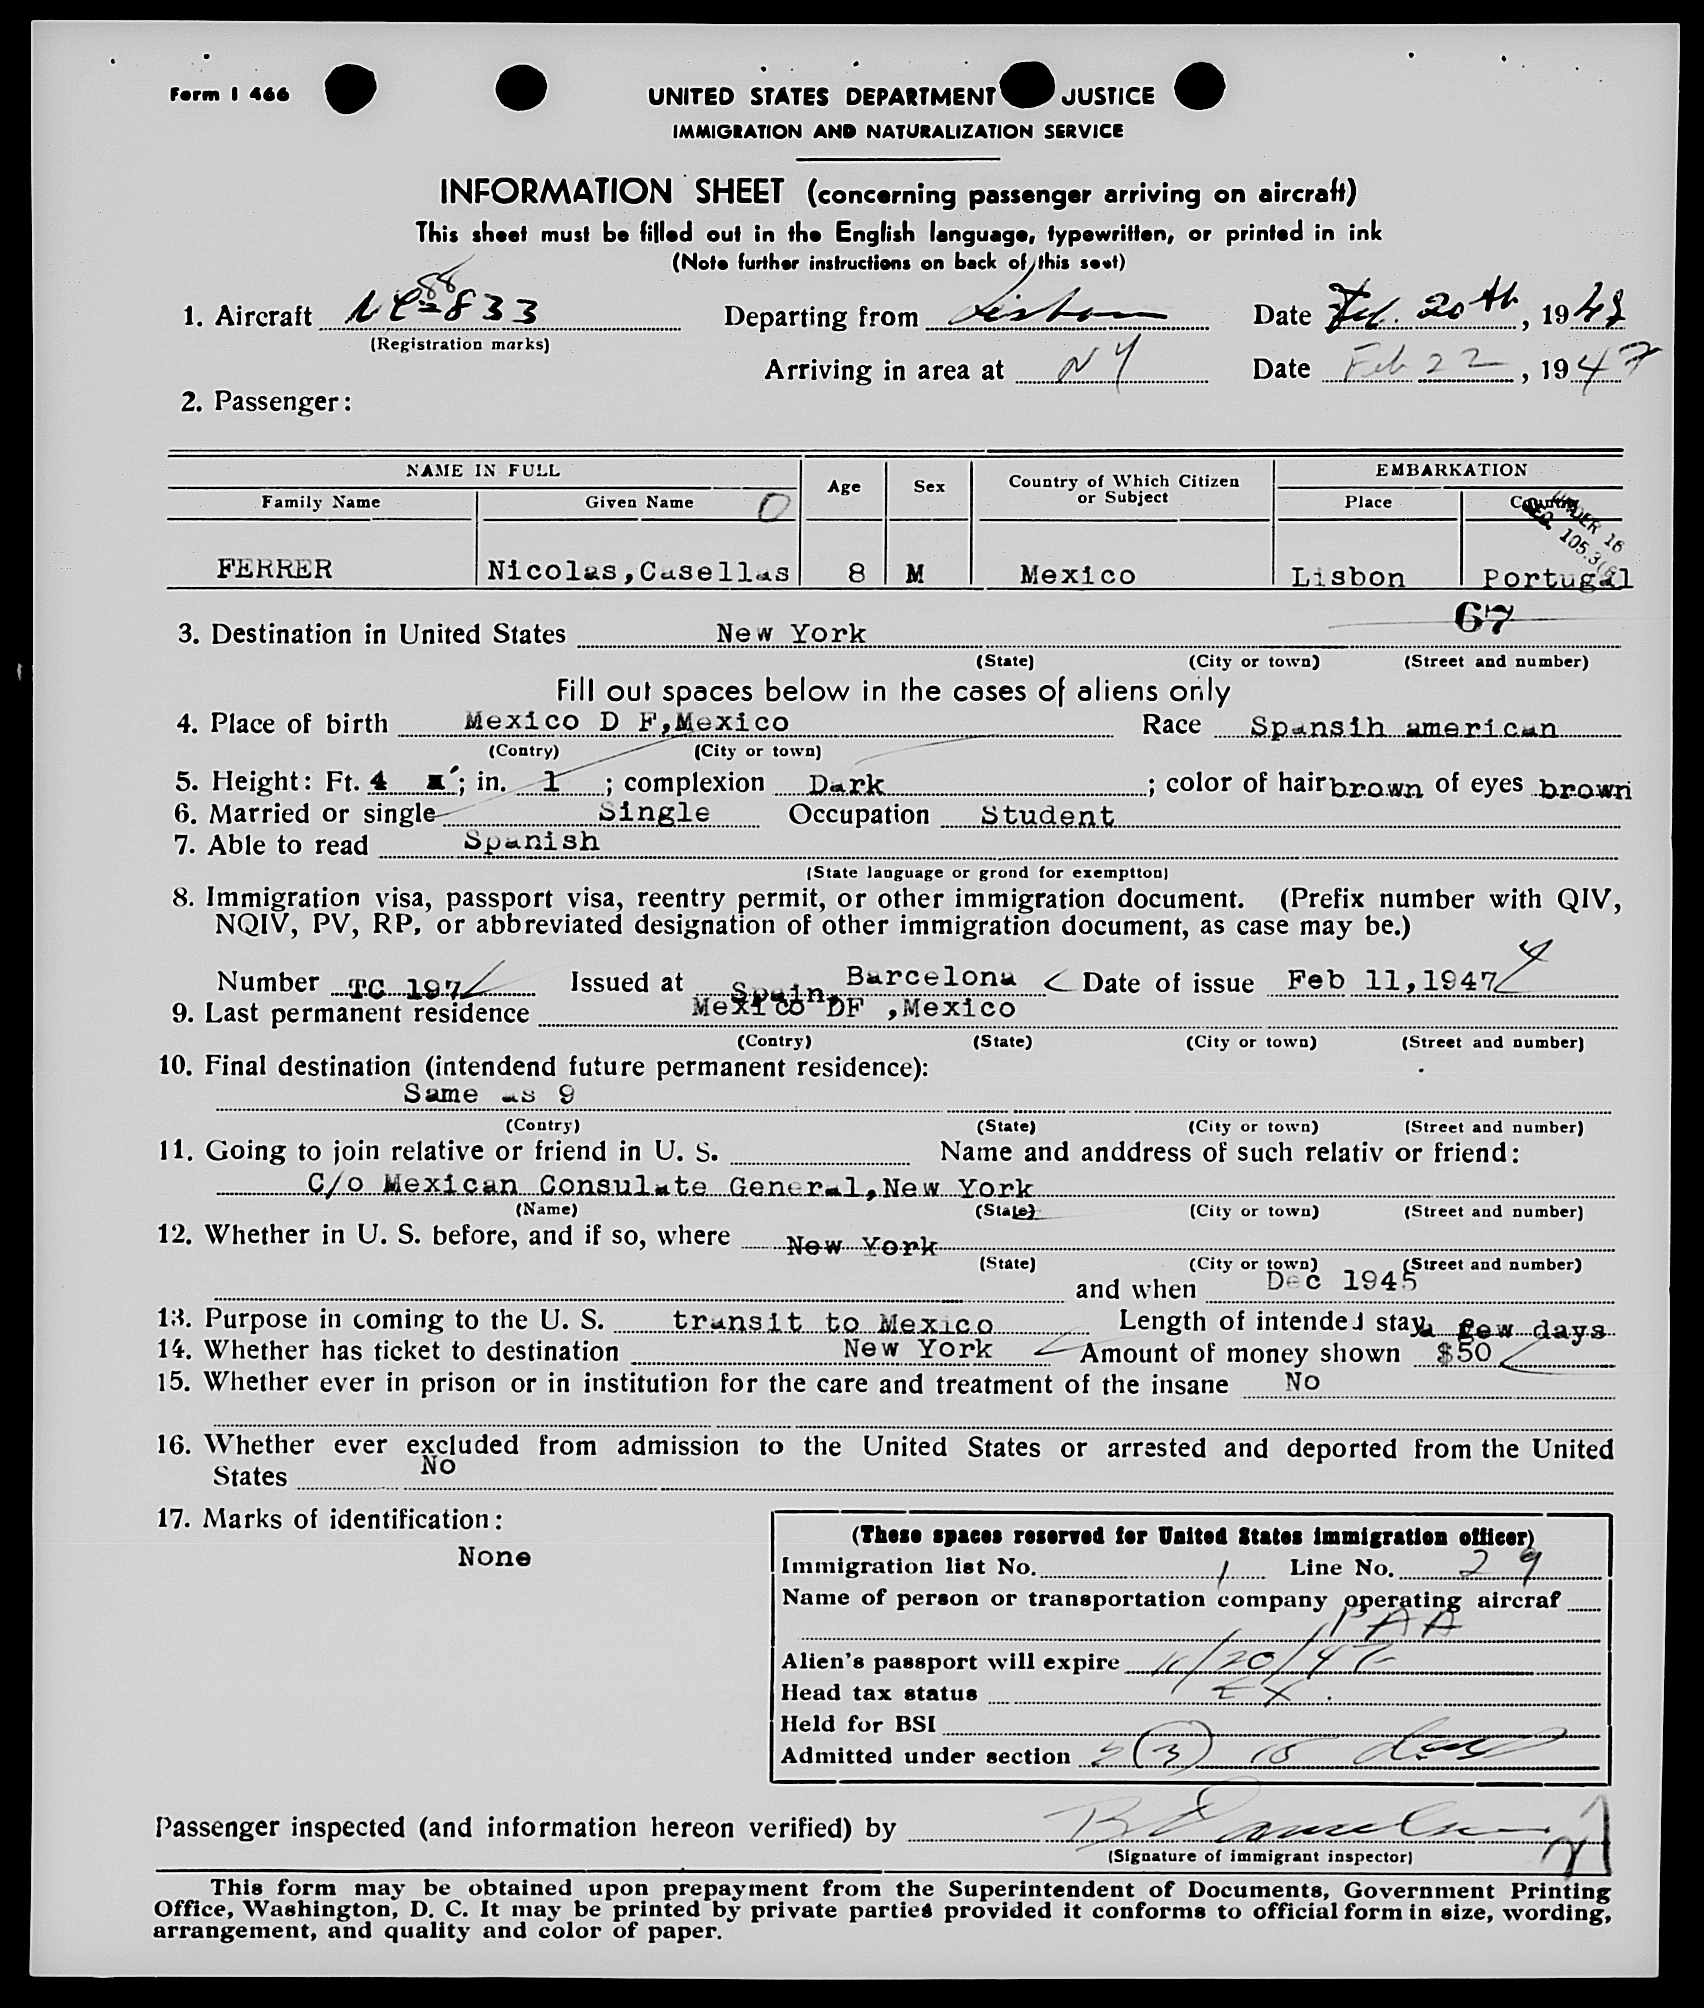 Form I 466
UNITED STATES DEPARTMENT JUSTICE
IMMIGRATION AND NATURALIZATION SERVICE
INFORMATION SHEET (concerning passenger arriving on aircraft)
This sheet must be filled out in the English language, typewritten, or printed in ink
(Note further instructions on back of this seet)
88
1. Aircraft NC-833 Departing from Lisbon Date Feb. 20th, 19
(Registration marks)
Arriving in area at NY Date Feb 22, 1947
2. Passenger:
NAME IN FULL Age Sex Country of Which Citizen or Subject EMBARKATION
Family Name Given Name Place Country
UNDER 16
SEC. 105.3
FERRER Nicolas,Casellas 8 M Mexico Lisbon Portugal
67
3. Destination in United States New York
(State) (City or town) (Street and number)
Fill out spaces below in the cases of aliens only
4. Place of birth Mexico D F,Mexico Race Spansih american
(Contry) (City or town)
5. Height: Ft. 4 ; in. 1 ; complexion Dark ; color of hair brown of eyes brown
6. Married or single Single Occupation Student
7. Able to read Spanish
(State language or grond for exemptton)
8. Immigration visa, passport visa, reentry permit, or other immigration document. (Prefix number with QIV,
NQIV, PV, RP, or abbreviated designation of other immigration document, as case may be.)
Number TC 197 Issued at Spain, Barcelona Date of issue Feb 11,1947
9. Last permanent residence Mexico DF ,Mexico
(Contry) (State) (City or town) (Street and number)
10. Final destination (intendend future permanent residence):
Same as 9
(Contry) (State) (City or town) (Street and number)
11. Going to join relative or friend in U. S. Name and anddress of such relativ or friend:
C/o Mexican Consulate General,New York
(Name) (State) (City or town) (Street and number)
12. Whether in U. S. before, and if so, where New York
(State) (City or town) (Street and number)
and when Dec 1945
13. Purpose in coming to the U. S. transit to Mexico Length of intended stay a few days
14. Whether has ticket to destination New York Amount of money shown $50
15. Whether ever in prison or in institution for the care and treatment of the insane No
16. Whether ever excluded from admission to the United States or arrested and deported from the United
States No
17. Marks of identification:
None
(These spaces reserved for United States immigration officer)
Immigration list No. 1 Line No. 29
Name of person or transportation company operating aircraf
PAA
Alien's passport will expire 11/20/47
Head tax status EX.
Held for BSI
Admitted under section 3(3) 15 days
Passenger inspected (and information hereon verified) by
(Signature of immigrant inspector)
This form may be obtained upon prepayment from the Superintendent of Documents, Government Printing
Office, Washington, D. C. It may be printed by private parties provided it conforms to official form in size, wording,
arrangement, and quality and color of paper.